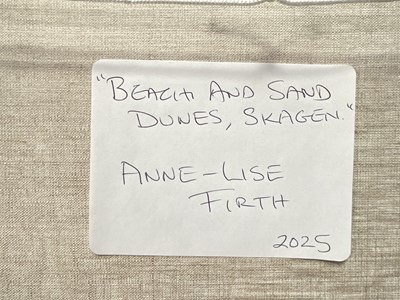 "BEACH AND SAND
DUNES, SKAGEN."
ANNE-LISE
FIRTH
2025